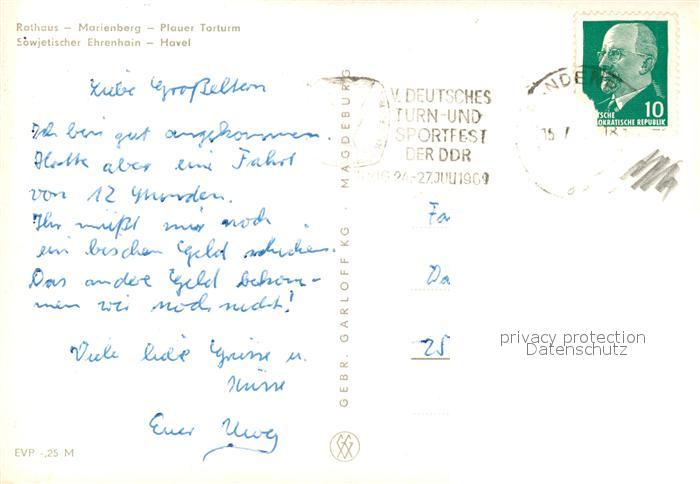 Rathaus — Marienberg — Plauer Torturm
Sowjetischer Ehrenhain — Havel
Liebe Großeltern
Ich bin gut angekommen.
Hatte aber eine Fahrt
von 12 Stunden.
Ihr müßt mir noch
ein bischen Geld schicken.
Das andere Geld bekom-
men wir noch nicht!
Viele liebe Grüsse u.
Küsse
Euer
EVP -,25 M
GEBR. GARLOFF KG · MAGDEBURG
V. DEUTSCHES
TURN-UND
SPORTFEST
DER DDR
24.-27.JULI 1969
NDENB
15.7
18
10
SCHE
KRATISCHE REPUBLIK
Fa
Da
25
privacy protection
Datenschutz